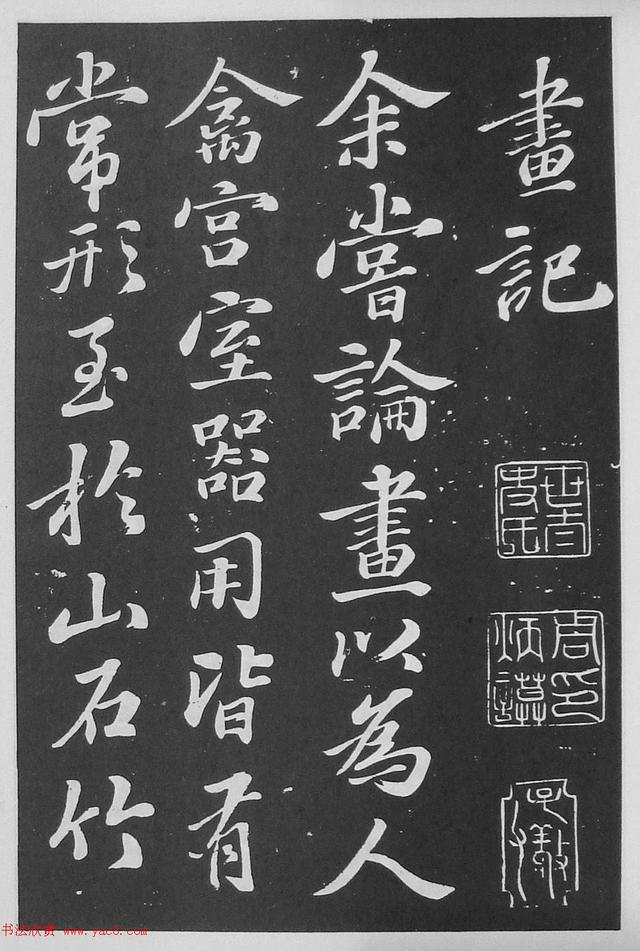 畫記
余嘗論畫以為人
禽宮室器用皆有
常形至於山石竹
书法欣赏 www.yac8.com